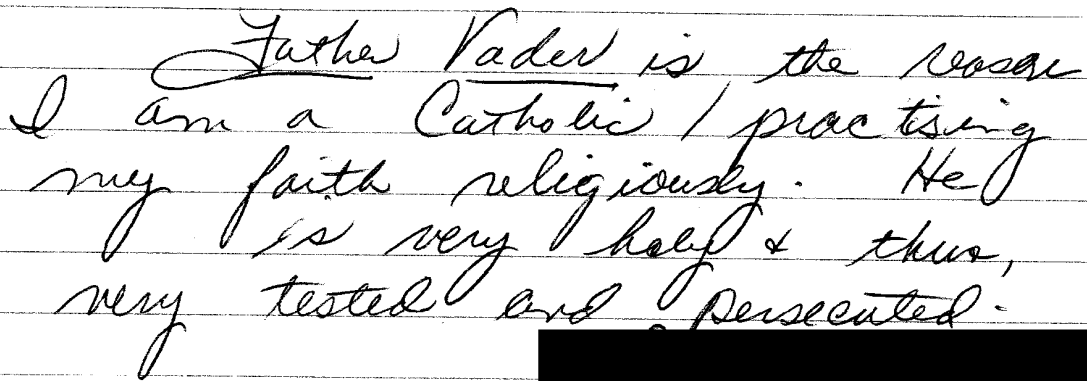 Father Vader is the reason
I am a Catholic / practising
my faith religiously. He
is very holy & thus,
very tested and persecuted.